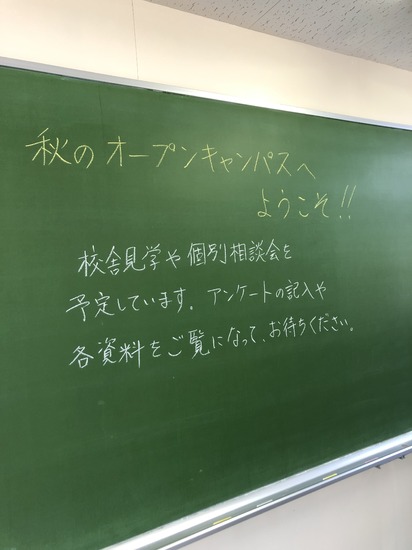 秋のオープンキャンパスへ
ようこそ!!
校舎見学や個別相談会を
予定しています。アンケートの記入や
各資料をご覧になって、お待ちください。